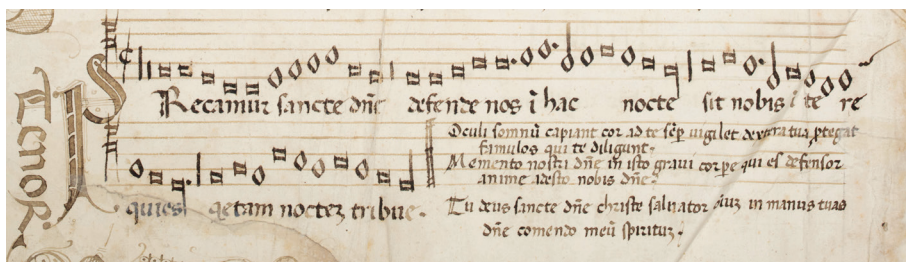 Tenor
Precamur sancte dn̄e defende nos ī hac nocte sit nobis ī te re
quies qetam noctez tribue.
Oculi somnū capiant cor ad te sēp vigilet dextera tua ꝓtegat
famulos qui te diligunt.
Memento nostri dn̄e in isto gravi corpe qui es defensor
anime adesto nobis dn̄e.
Tu deus sancte dn̄e christe salvator in manus tuas
dn̄e comendo meū spirituz.